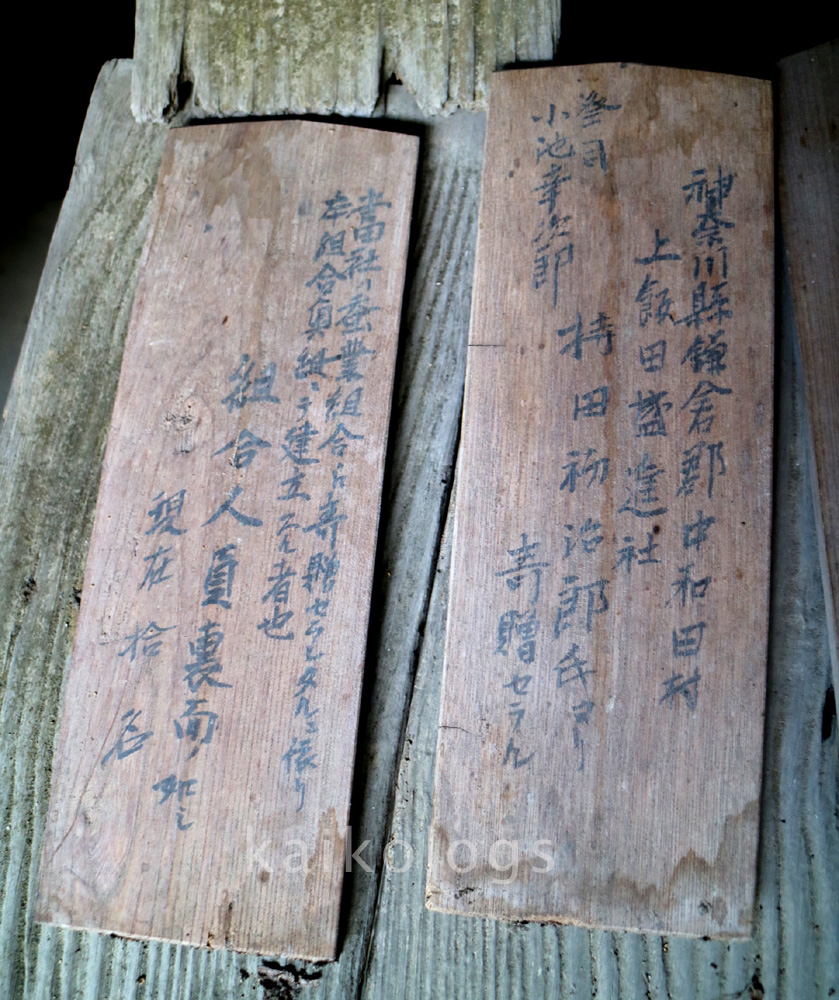 神奈川縣鎌倉郡中和田村
上飯田盛進社
持田初治郎氏ヨリ
寄贈セラル
小池幸次郎
當社ハ蚕業組合ヘ寄贈セラレタルニ依り
本組合員 建立 者也
組合人員裏面ノ如シ
現在拾名
kaikologs